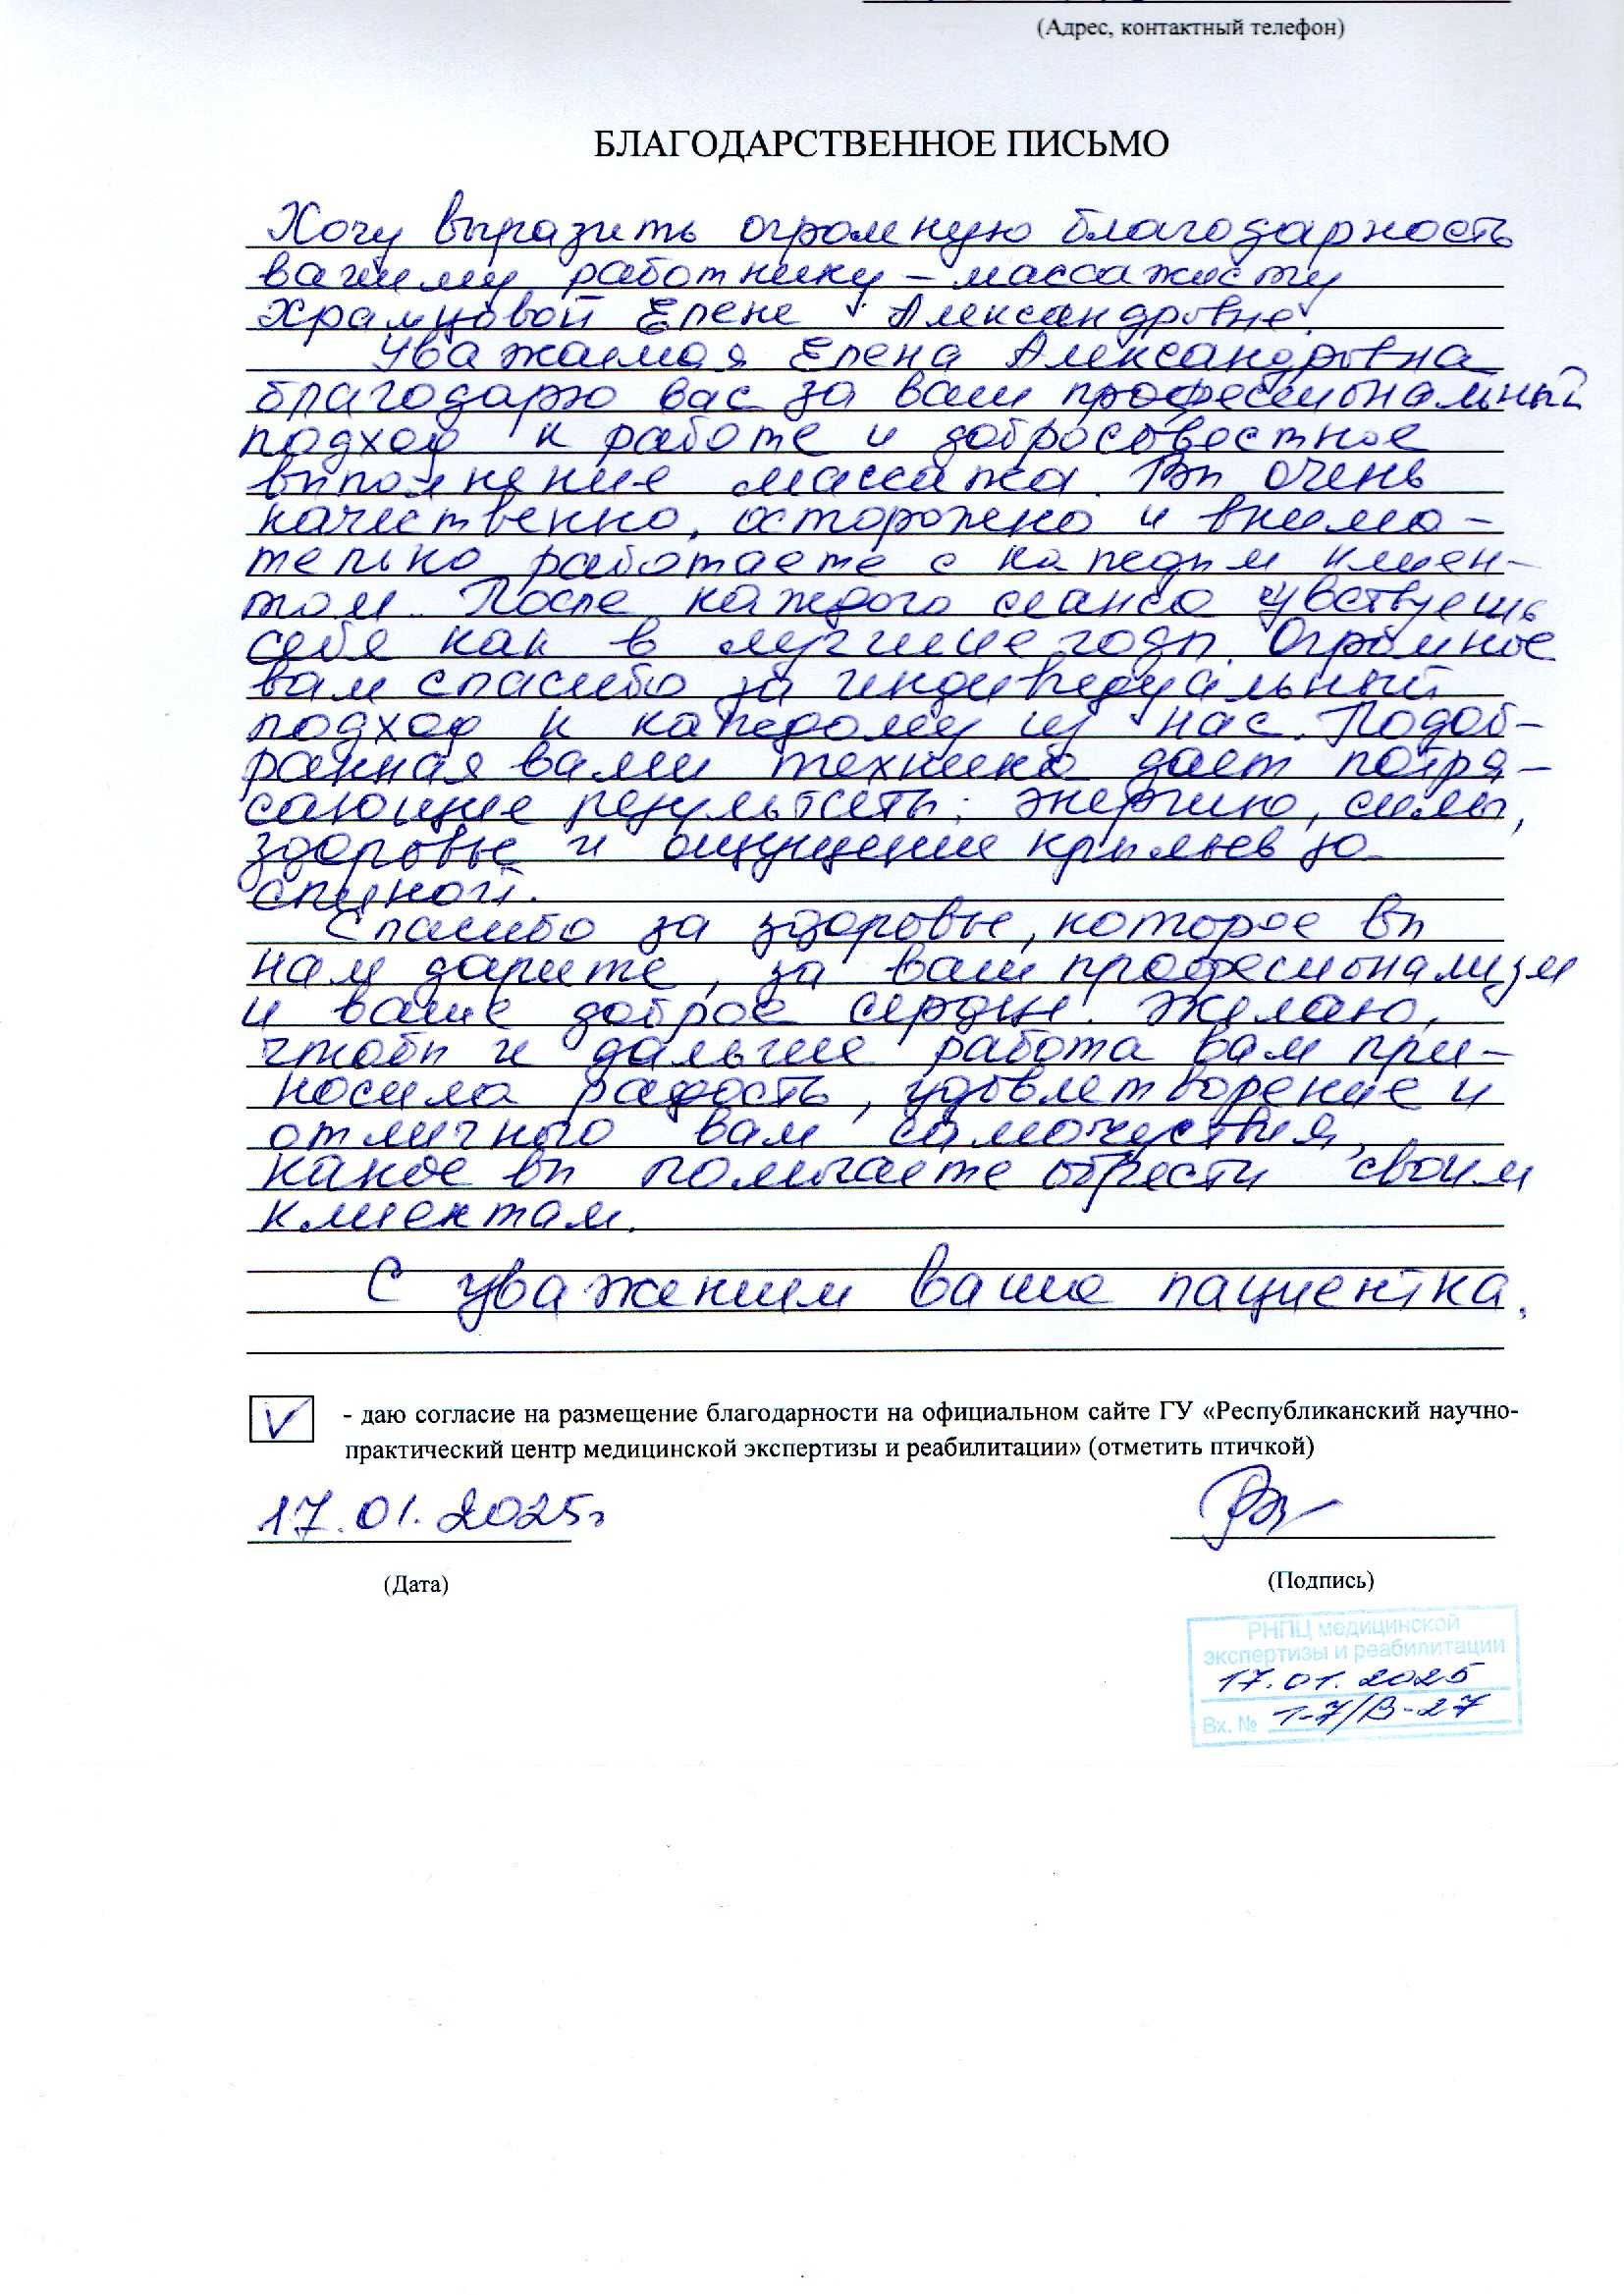 (Адрес, контактный телефон)
БЛАГОДАРСТВЕННОЕ ПИСЬМО
Хочу выразить огромную благодарность
вашему работнику – массажисту
Храмцовой Елене Александровне.
Уважаемая Елена Александровна
благодарю вас за ваш профессиональный
подход к работе и добросовестное
выполнение массажа. Вы очень
качественно, осторожно и внима-
тельно работаете с каждым клиен-
том. После каждого сеанса чувствуешь
себя как в лучшие годы. Огромное
вам спасибо за индивидуальный
подход к каждому из нас. Подоб-
ранная вами техника дает потря-
сающие результаты: энергию, силы,
здоровье и ощущение крыльев за
спиной.
Спасибо за здоровье, которое вы
нам дарите, за ваш професионализм
и ваше доброе сердце. Желаю,
чтобы и дальше работа вам при-
носила радость, удовлетворение и
отличного вам самочуствия,
какое вы помогаете обрести своим
клиентам.
С уважением ваша пациентка.
V - даю согласие на размещение благодарности на официальном сайте ГУ «Республиканский научно-
практический центр медицинской экспертизы и реабилитации» (отметить птичкой)
17.01.2025г
(Дата) (Подпись)
РНПЦ медицинской
экспертизы и реабилитации
17.01.2025
Вх. № 1-7/В-27